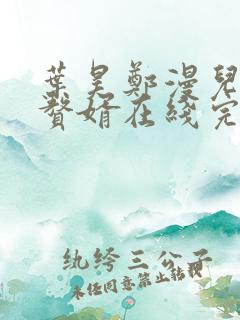 葉昊鄭漫兒
贅婿在綫完
纨绔三公子
未经同意禁止转载